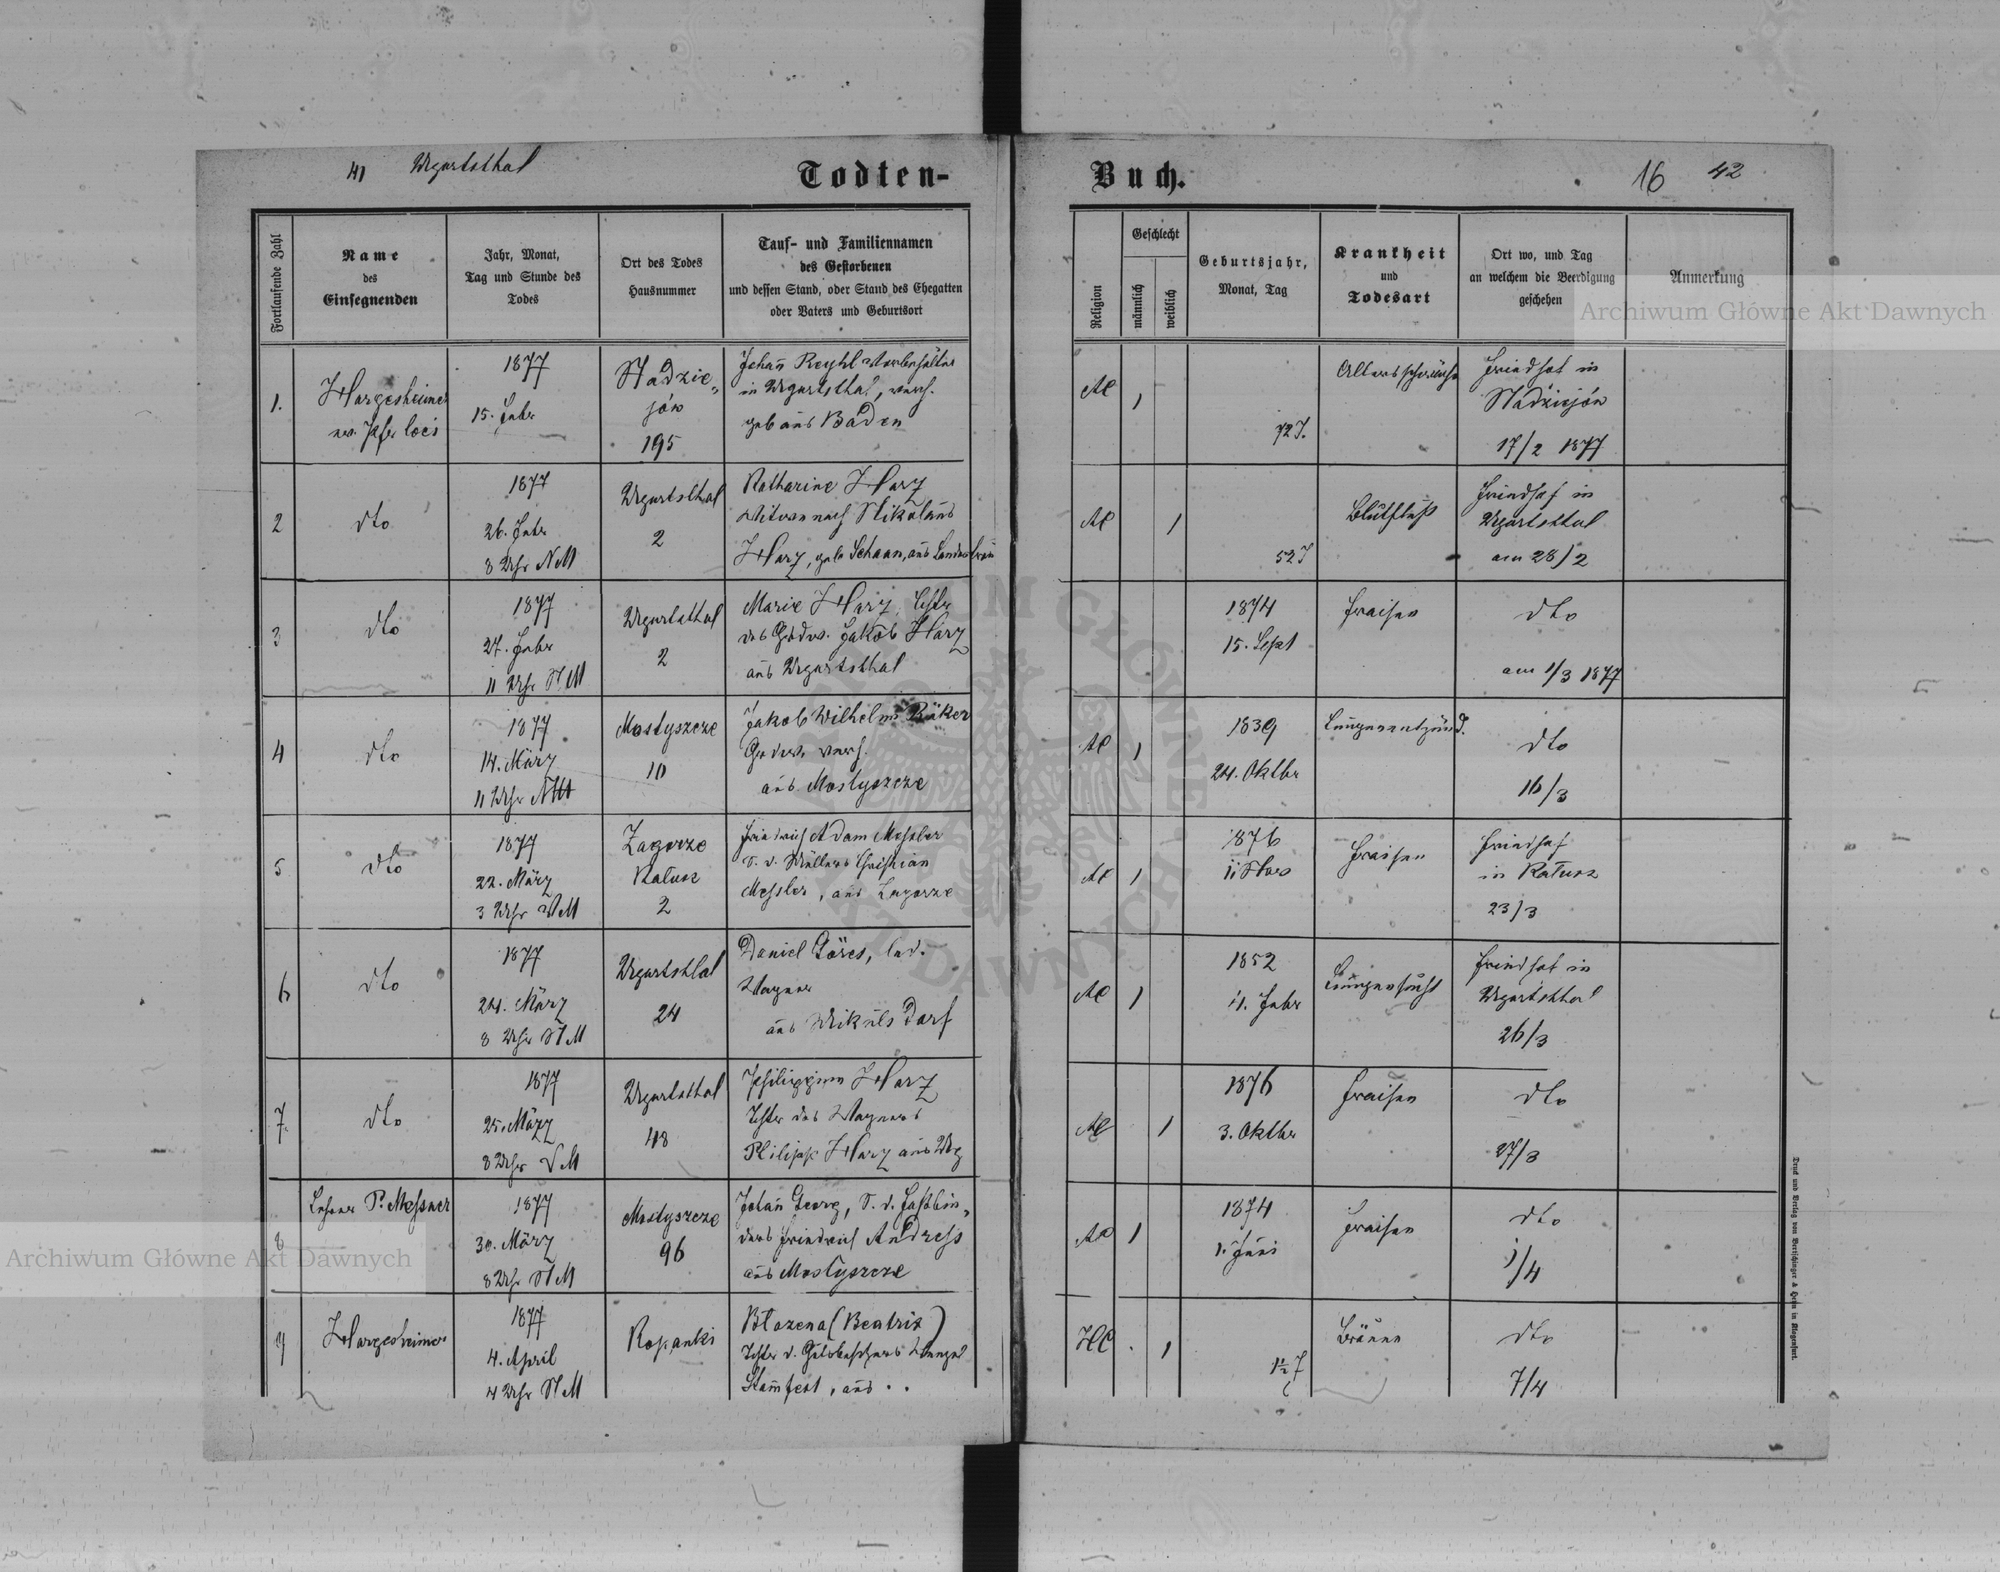 41 Ugartsthal
Todten-
Buch.
16 42
Fortlaufende Zahl
Name
des
Einsegnenden
Jahr, Monat,
Tag und Stunde des
Todes
Ort des Todes
Hausnummer
Tauf- und Familiennamen
des Gestorbenen
und dessen Stand, oder Stand des Ehegatten
oder Vaters und Geburtsort
Religion
Geschlecht
männlich
weiblich
Geburtsjahr,
Monat, Tag
Krankheit
und
Todesart
Ort wo, und Tag
an welchem die Beerdigung
geschehen
Anmerkung
Archiwum Główne Akt Dawnych
1.
Hargesheimer
ev. Pfr loci
1877
15. Febr
Stadzie„
jów
195
Johañ Reyhl
in Ugartsthal, verh.
geb aus Baden
AC
1
72 J.
Altersschwäche
Friedhof in
17/2 1877
2
dto
1877
26. Febr
8 Uhr NM
Ugartsthal
2
Katharine Harz
Witwe nach Nikolaus
Harz, geb Schaan, aus
AC
1
52 J
Blutfluß
Friedhof in
Ugartsthal
am 28/2
3
dto
1877
27. Febr
11 Uhr NM
Ugartsthal
2
Marie Harz, Tchtr
des Grdw. Jakob Harz
aus Ugartsthal
1874
15. Sept
Fraisen
dto
am 1/3 1877
4
dto
1877
14. März
11 Uhr NM
Mostyszcze
10
Jakob Wilhelm Bäker
Grdw. verh.
aus Mostyszcze
AC
1
1839
24. Oktbr
Lungenentzünd.
dto
16/3
5
dto
1877
22. März
3 Uhr VM
Zagorze
Kalusz
2
Friedrich Adam Messler
S. d. Müllers Christian
Messler, aus Zagorze
AC
1
1876
11 Nov
Fraisen
Friedhof
in Kałusz
23/3
6
dto
1877
24. März
8 Uhr NM
Ugartsthal
24
Daniel Göres, led.
Wagner
aus Mikulsdorf
AC
1
1852
11. Febr
Lungensucht
Friedhof in
Ugartsthal
26/3
7.
dto
1877
25. März
8 Uhr VM
Ugartsthal
48
Philippine Harz
Tchtr des Wagners
Philipp Harz aus Ubg
AC
1
1876
3. Oktbr
Fraisen
dto
27/3
8
Lehrer P. Messner
1877
30. März
8 Uhr NM
Mostyszcze
96
Johañ Georg, S. d. Faßbin„
ders Friedrich Andress
aus Mostyszcze
AC
1
1874
1. Juni
Fraisen
dto
1/4
9
Hargesheimer
1877
4. April
4 Uhr NM
Kopanki
Błazena (Beatrix)
Tchtr d. Gutsbesitzers Wenzel
Stamfest, aus . .
HC
1
1½ J
Bräune
dto
7/4
Druck und Verlag von Bertschinger & Heyn in Klagenfurt.
Archiwum Główne Akt Dawnych